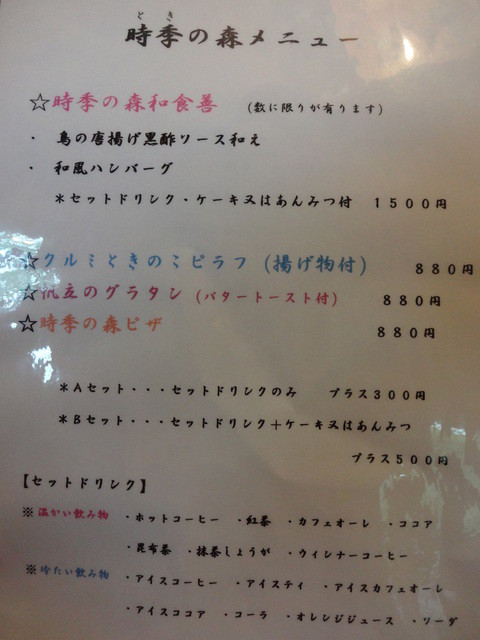 とき
時季の森メニュー
☆時季の森和食善 (数に限りが有ります)
・ 鳥の唐揚げ黒酢ソース和え
・ 和風ハンバーグ
＊セットドリンク・ケーキ又はあんみつ付 １５００円
☆クルミときのこピラフ (揚げ物付) ８８０円
☆帆立のグラタン (バタートースト付) ８８０円
☆時季の森ピザ ８８０円
＊Ａセット・・・セットドリンクのみ プラス３００円
＊Ｂセット・・・セットドリンク＋ケーキ又はあんみつ
プラス５００円
【セットドリンク】
※温かい飲み物 ・ホットコーヒー ・紅茶 ・カフェオーレ ・ココア
・昆布茶 ・抹茶しょうが ・ウィンナーコーヒー
※冷たい飲み物 ・アイスコーヒー ・アイスティ ・アイスカフェオーレ
・アイスココア ・コーラ ・オレンジジュース ・ソーダ